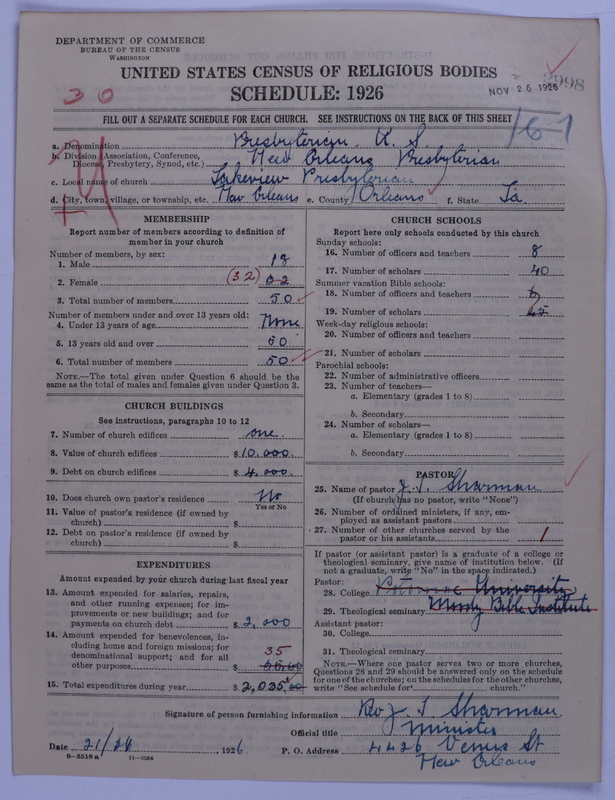 DEPARTMENT OF COMMERCE
BUREAU OF THE CENSUS
WASHINGTON
UNITED STATES CENSUS OF RELIGIOUS BODIES
SCHEDULE: 1926
30
NOV 26 1926
2998
FILL OUT A SEPARATE SCHEDULE FOR EACH CHURCH. SEE INSTRUCTIONS ON THE BACK OF THIS SHEET
16-1
a. Denomination Presbyterian U. S.
b. Division (Association, Conference, Diocese, Presbytery, Synod, etc.) New Orleans Presbyterian
c. Local name of church Lakeview Presbyterian
d. City, town, village, or township, etc. New Orleans e. County Orleans f. State La.
MEMBERSHIP
Report number of members according to definition of
member in your church
Number of members, by sex:
1. Male 18
2. Female (32)
3. Total number of members 50
Number of members under and over 13 years old:
4. Under 13 years of age None
5. 13 years old and over 50
6. Total number of members 50
NOTE.—The total given under Question 6 should be the
same as the total of males and females given under Question 3.
CHURCH BUILDINGS
See instructions, paragraphs 10 to 12
7. Number of church edifices one.
8. Value of church edifices $10.000.
9. Debt on church edifices $4.000.
10. Does church own pastor's residence No
Yes or No
11. Value of pastor's residence (if owned by
church) $
12. Debt on pastor's residence (if owned by
church) $
EXPENDITURES
Amount expended by your church during last fiscal year
13. Amount expended for salaries, repairs,
and other running expenses; for im-
provements or new buildings; and for
payments on church debt $2,000
14. Amount expended for benevolences, in-
cluding home and foreign missions; for
denominational support; and for all
other purposes $ 35
15. Total expenditures during year $2,035.00
CHURCH SCHOOLS
Report here only schools conducted by this church
Sunday schools:
16. Number of officers and teachers 8
17. Number of scholars 40
Summer vacation Bible schools:
18. Number of officers and teachers
19. Number of scholars
Week-day religious schools:
20. Number of officers and teachers
21. Number of scholars
Parochial schools:
22. Number of administrative officers
23. Number of teachers—
a. Elementary (grades 1 to 8)
b. Secondary
24. Number of scholars—
a. Elementary (grades 1 to 8)
b. Secondary
PASTOR
25. Name of pastor J. T. Sharman
(If church has no pastor, write "None")
26. Number of ordained ministers, if any, em-
ployed as assistant pastors
27. Number of other churches served by the
pastor or his assistants 1
If pastor (or assistant pastor) is a graduate of a college or
theological seminary, give name of institution below. (If
not a graduate, write "No" in the space indicated.)
Pastor:
28. College University
29. Theological seminary Moody Bible Institute
Assistant pastor:
30. College
31. Theological seminary
NOTE.—Where one pastor serves two or more churches,
Questions 28 and 29 should be answered only on the schedule
for one of the churches; on the schedules for the other churches,
write "See schedule for church."
Signature of person furnishing information Rev J. T. Sharman
Official title Minister
Date 21/26, 1926 P. O. Address 4426 Venus St
New Orleans
8-5518a 11-9084